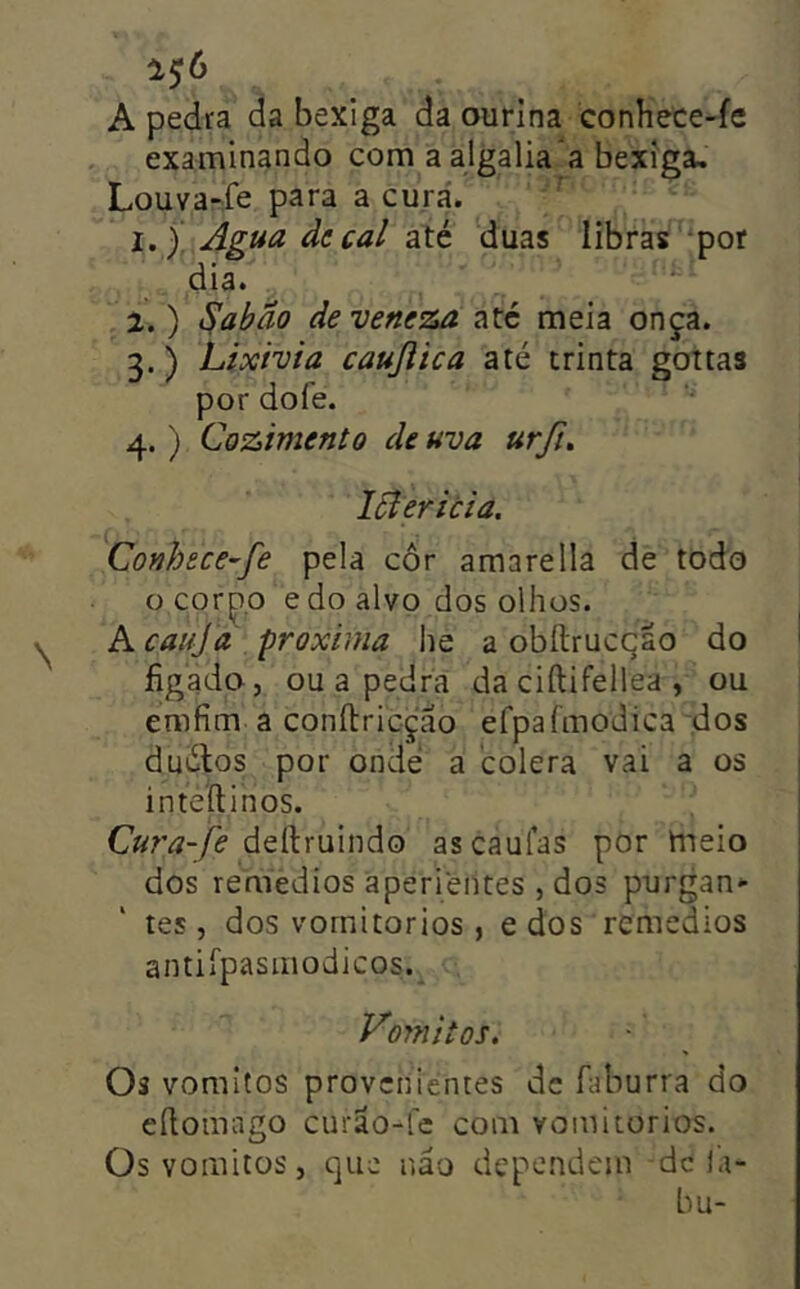 256
A pedra da bexiga da ourina conhece-ſe
examinando com a algalia a bexiga.
Louva-ſe para a cura.
1.) Agua de cal até duas libras por
dia.
2.) Sabão de veneza até meia onça.
3.) Lixivia cauſtica até trinta gottas
por doſe.
4.) Cozimento de uva urſi.
Ictericia.
Conhece-ſe pela côr amarella de todo
o corpo e do alvo dos olhos.
A cauſa proxima he a obſtrucção do
figado, ou a pedra da ciſtifellea, ou
emfim a conſtricção eſpaſmodica dos
ductos por onde a colera vai a os
inteſtinos.
Cura-ſe deſtruindo as cauſas por meio
dos remedios aperientes, dos purgan-
tes, dos vomitorios, e dos remedios
antiſpasmodicos.
Vomitos.
Os vomitos provenientes de ſaburra do
eſtomago curão-ſe com vomitorios.
Os vomitos, que não dependem de ſa-
bu-